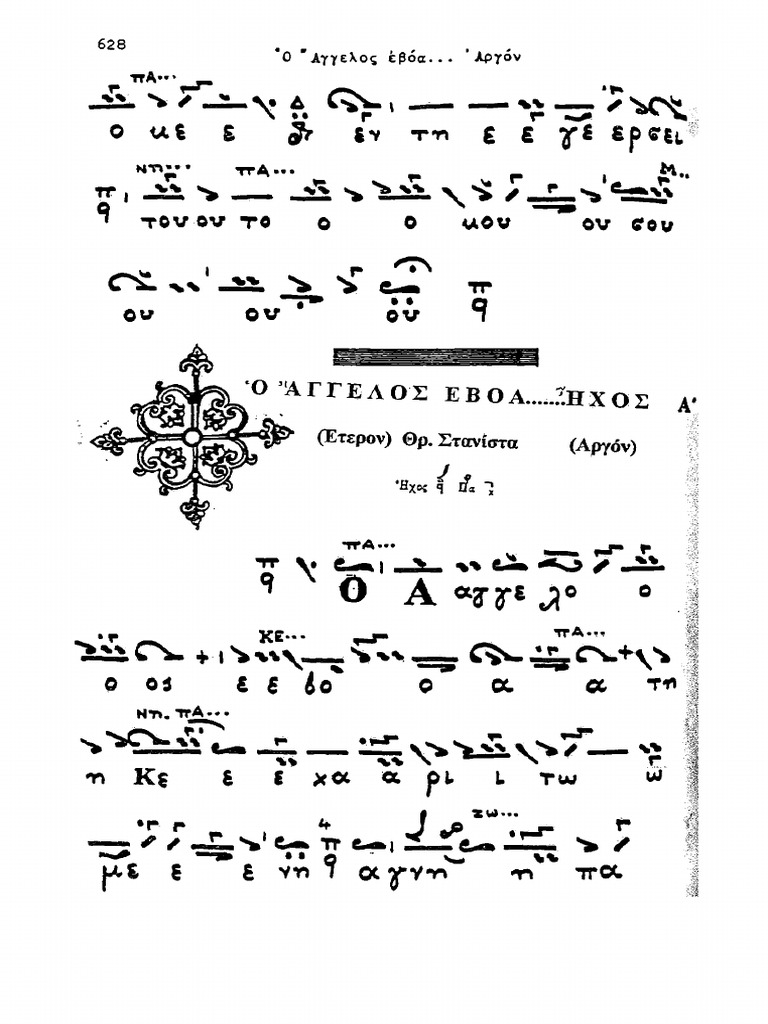 628
Ὁ Ἄγγελος ἐβόα... Ἀργόν
πΑ...
ο κε ε εν τη ε ε γε ερ σει
νη... πΑ... Μ..
π
q του ου το ο ο μου ου σου
ου ου ου π
q
Ὁ ἌΓΓΕΛΟΣ ΕΒΟΑ......ἮΧΟΣ Α'
(Ετερον) Θρ. Στανίστα (Αργόν)
Ἦχος q Πα
πΑ...
π
q Ο Α αγ γε λο ο
ΚΕ... πΑ...
ο ος ε ε βο ο α α τη
νη. πΑ...
η Κε ε ε χα α ρι ι τω ω
4 ζω...
με ε ε νη π
q α γνη η πα